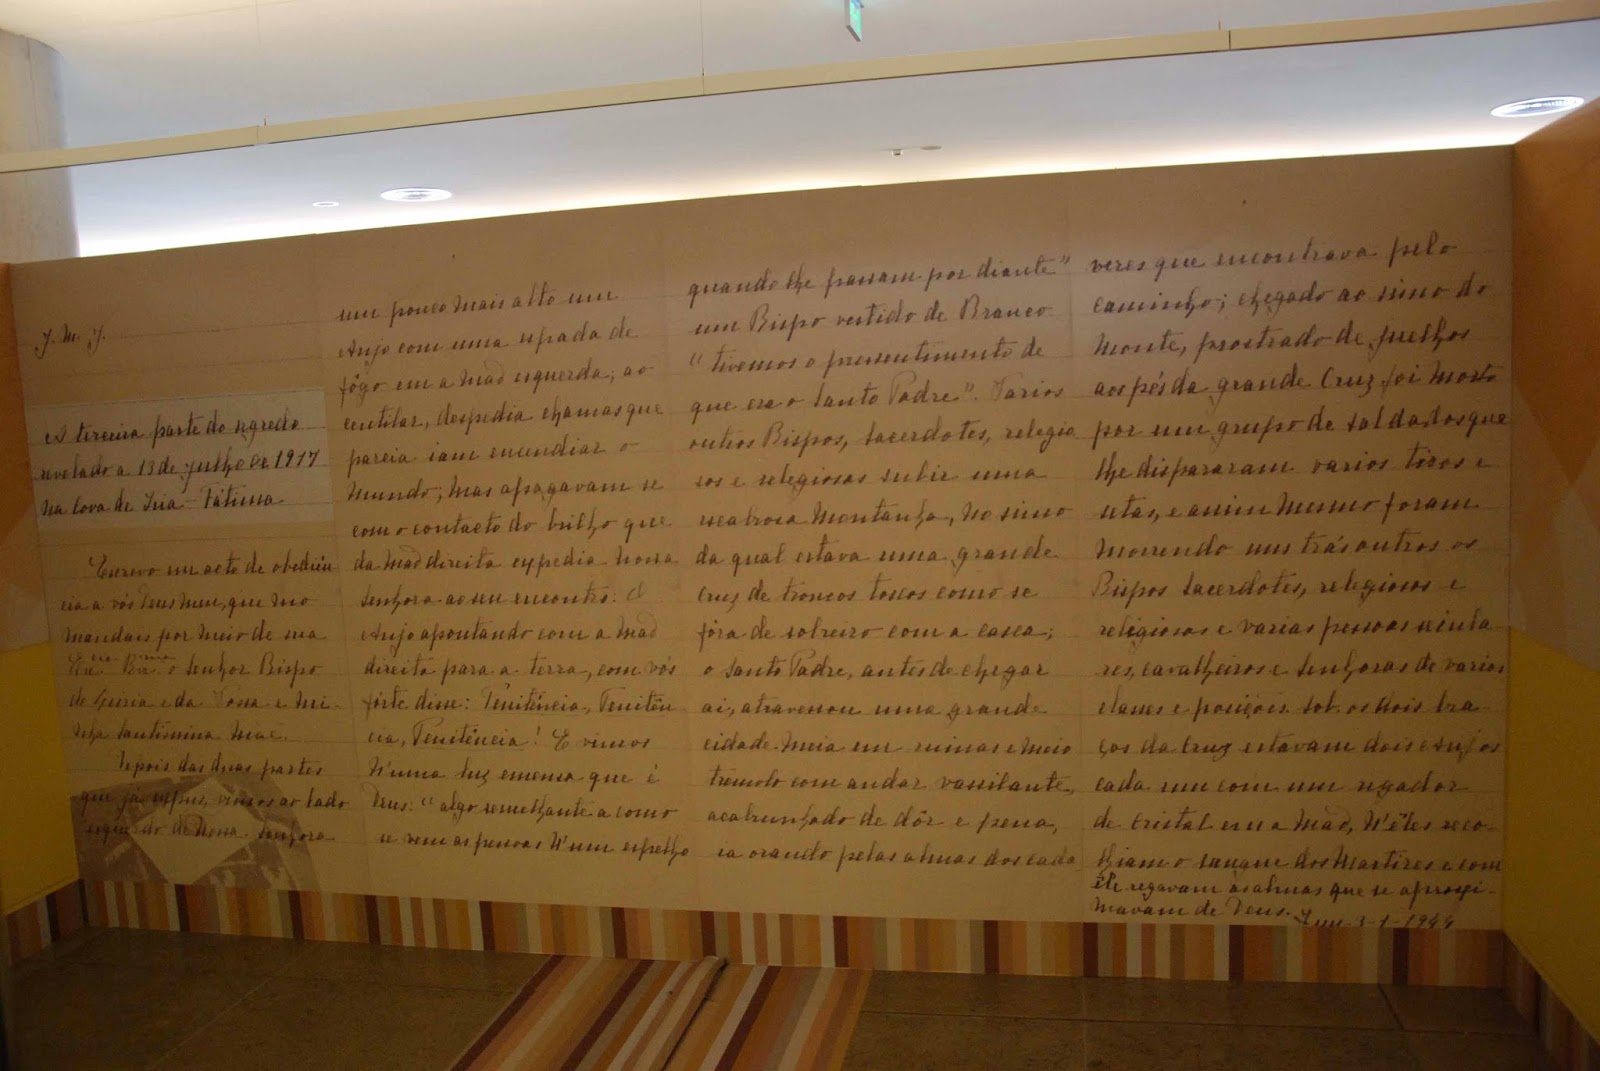 J. M. J.
A terceira parte do segredo
revelado a 13 de julho de 1917
na Cova de Iria - Fátima
Escrevo em acto de obediên
cia a vós Deus meu, que mo
mandais por meio de sua
Ex.cia Rev.ma o Senhor Bispo
de Leiria e da Vossa e mi-
nha Santissima Mãe.
Depois das duas partes
que já expus, vimos ao lado
esquerdo de Nossa Senhora
um pouco mais alto um
Anjo com uma espada de
fôgo em a mão esquerda; ao
centilar, despedia chamas que
parecia iam encendiar o
mundo; mas apagavam se
com o contacto do brilho que
da mão direita expedia Nossa
Senhora ao seu encontro: O
Anjo apontando com a mão
direita para a terra, com vós
forte disse: Penitência, Penitên
cia, Penitência! E vimos
n'uma luz emensa que é
Deus: "algo semelhante a como
se vem as pessoas n'um espelho
quando lhe passam por diante"
um Bispo vestido de Branco
"tivemos o pressentimento de
que era o Santo Padre". Varios
outros Bispos, Sacerdotes, religio
sos e religiosas subir uma
escabrosa montanha, no simo
da qual estava uma grande
Cruz de troncos toscos como se
fôra de sobreiro com a casca;
o Santo Padre, antes de chegar
aí, atravessou uma grande
cidade meia em ruinas e meio
tremolo com andar vassilante,
acabrunhado de dôr e pena,
ia orando pelas almas dos cada
veres que encontrava pelo
caminho; chegado ao simo do
monte, prostrado de juelhos
aos pés da grande Cruz foi morto
por um grupo de soldados que
lhe dispararam varios tiros e
setas, e assim mesmo foram
morrendo uns trás outros os
Bispos Sacerdotes, religiosos e
religiosas e varias pessoas secula
res, cavalheiros e senhoras de varias
classes e posições. Sob os dois bra
ços da Cruz estavam dois Anjos
cada um com um regador
de cristal em a mão, n'êles reco-
lhiam o sangue dos Martires e com
êle regavam as almas que se aproxi-
mavam de Deus.
Tuy-3-1-1944